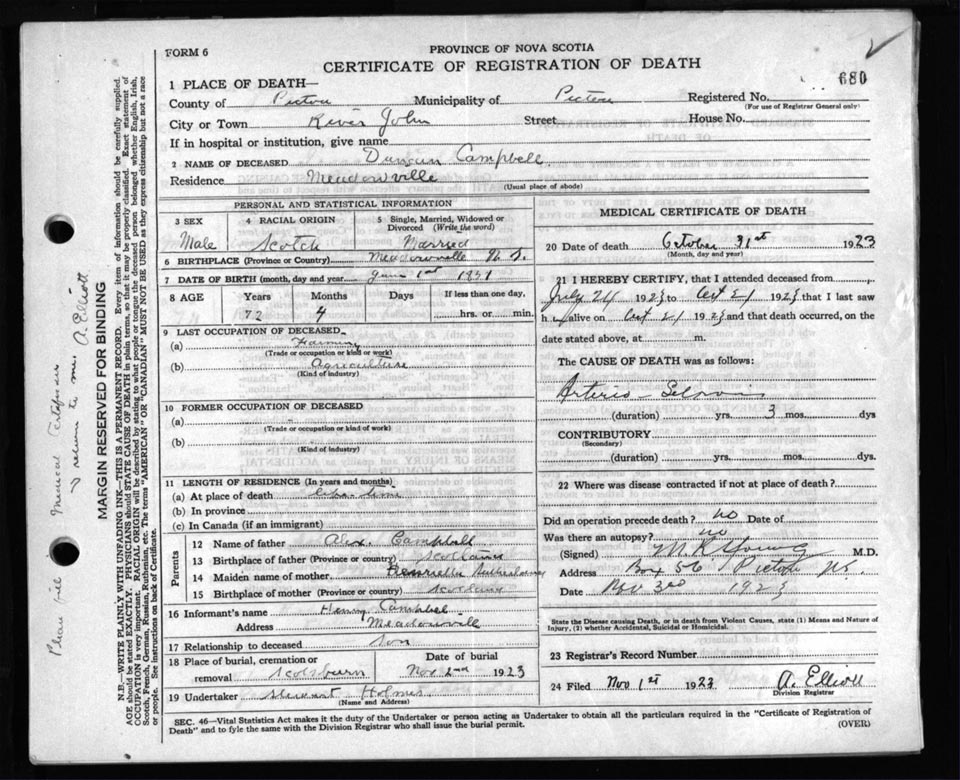 FORM 6
PROVINCE OF NOVA SCOTIA
CERTIFICATE OF REGISTRATION OF DEATH
680
1 PLACE OF DEATH—
County of Pictou Municipality of Pictou Registered No.
(For use of Registrar General only)
City or Town River John Street House No.
If in hospital or institution, give name
2 NAME OF DECEASED Duncan Campbell
Residence Meadowville
(Usual place of abode)
PERSONAL AND STATISTICAL INFORMATION
3 SEX 4 RACIAL ORIGIN 5 Single, Married, Widowed or Divorced (Write the word)
Male Scotch Married
6 BIRTHPLACE (Province or Country) Meadowville N. S.
7 DATE OF BIRTH (month, day and year) June 1st 1851
8 AGE Years Months Days If less than one day,
72 4 hrs. or min.
9 LAST OCCUPATION OF DECEASED
(a) Farming
(Trade or occupation or kind or work)
(b) Agriculture
(Kind of industry)
10 FORMER OCCUPATION OF DECEASED
(a)
(Trade or occupation or kind of work)
(b)
(Kind of industry)
11 LENGTH OF RESIDENCE (In years and months)
(a) At place of death life time
(b) In province
(c) In Canada (if an immigrant)
Parents
12 Name of father Alex. Campbell
13 Birthplace of father (Province or country) Scotland
14 Maiden name of mother Henrietta Sutherland
15 Birthplace of mother (Province or country) Scotland
16 Informant's name Henry Campbel
Address Meadowville
17 Relationship to deceased Son
18 Place of burial, cremation or removal Scotsburn Date of burial Nov 2nd 1923
19 Undertaker Stewart Holmes
(Name and Address)
MEDICAL CERTIFICATE OF DEATH
20 Date of death October 31st 1923
(Month, day and year)
21 I HEREBY CERTIFY, that I attended deceased from
July 24 1923 to Oct 21 1923 that I last saw
h alive on Oct 21 1923 and that death occurred, on
date stated above, at m.
The CAUSE OF DEATH was as follows:
Arterio-
(duration) yrs. 3 mos. dys
CONTRIBUTORY
(Secondary)
(duration) yrs. mos. dys.
22 Where was disease contracted if not at place of death?
Did an operation precede death? no Date of
Was there an autopsy? no
(Signed) M R Young M.D.
Address Box 56 Pictou NS.
Date 1923
State the Disease causing Death, or in death from Violent Causes, state (1) Means and Nature of
Injury, (2) whether Accidental, Suicidal or Homicidal.
23 Registrar's Record Number
24 Filed Nov 1st 1923 A. Elliott
Division Registrar
SEC. 46—Vital Statistics Act makes it the duty of the Undertaker or person acting as Undertaker to obtain all the particulars required in the "Certificate of Registration of
Death" and to fyle the same with the Division Registrar who shall issue the burial permit.
(OVER)
MARGIN RESERVED FOR BINDING
N.B.—WRITE PLAINLY WITH UNFADING INK—THIS IS A PERMANENT RECORD. Every item of information should be carefully supplied.
AGE should be stated EXACTLY. PHYSICIANS should STATE CAUSE OF DEATH in plain terms, so that it may be properly classified. Exact statement of
OCCUPATION is very important. RACIAL ORIGIN will be described by stating to what people or tongue the deceased person belonged whether English, Irish,
Scotch, French, German, Russian, Ruthenian, etc. The terms "AMERICAN" OR "CANADIAN" MUST NOT BE USED as they express citizenship but not a race
or people. See instructions on back of Certificate.
Medical
& return to me A. Elliott